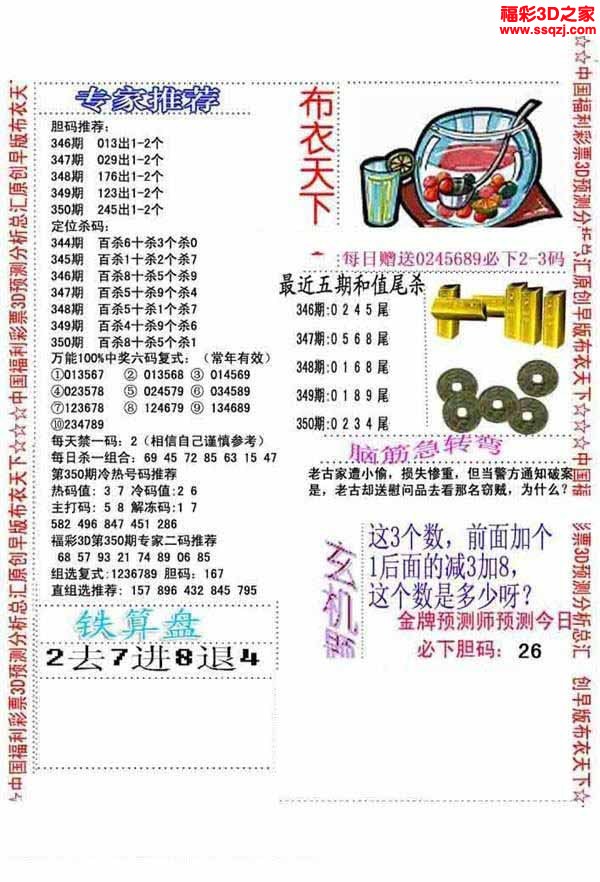 福彩3D之家
www.ssqzj.com
专家推荐
胆码推荐:
346期 013出1-2个
347期 029出1-2个
348期 176出1-2个
349期 123出1-2个
350期 245出1-2个
定位杀码:
344期 百杀6十杀3个杀0
345期 百杀1十杀2个杀7
346期 百杀8十杀5个杀9
347期 百杀5十杀9个杀4
348期 百杀5十杀1个杀7
349期 百杀4十杀9个杀6
350期 百杀8十杀5个杀1
万能100%中奖六码复式:(常年有效)
①013567 ②013568 ③014569
④023578 ⑤024579 ⑥034589
⑦123678 ⑧124679 ⑨134689
⑩234789
每天禁一码:2(相信自己谨慎参考)
每日杀一组合:69 45 72 85 63 15 47
第350期冷热号码推荐
热码值:3 7 冷码值:2 6
主打码:5 8 解冻码:1 7
582 496 847 451 286
福彩3D第350期专家二码推荐
68 57 93 21 74 89 06 85
组选复式:1236789 胆码:167
直组选推荐:157 896 432 845 795
铁算盘
2去7进8退4
布衣天下
:每日赠送0245689必下2-3码
最近五期和值尾杀
346期:0245尾
347期:0568尾
348期:0168尾
349期:0189尾
350期:0234尾
脑筋急转弯
老古家遭小偷,损失惨重,但当警方通知破案
是,老古却送慰问品去看那名窃贼,为什么?
玄机
这3个数,前面加个
1后面的减3加8,
这个数是多少呀?
金牌预测师预测今日
必下胆码: 26
☆中国福利彩票3D预测分析总汇原创早版布衣天下☆☆☆中国福利彩票3D预测分析总汇原创早版布衣天
☆☆中国福利彩票3D预测分析总汇原创早版布衣天下☆☆☆中国福
彩票3D预测分析总汇 创早版布衣天下☆